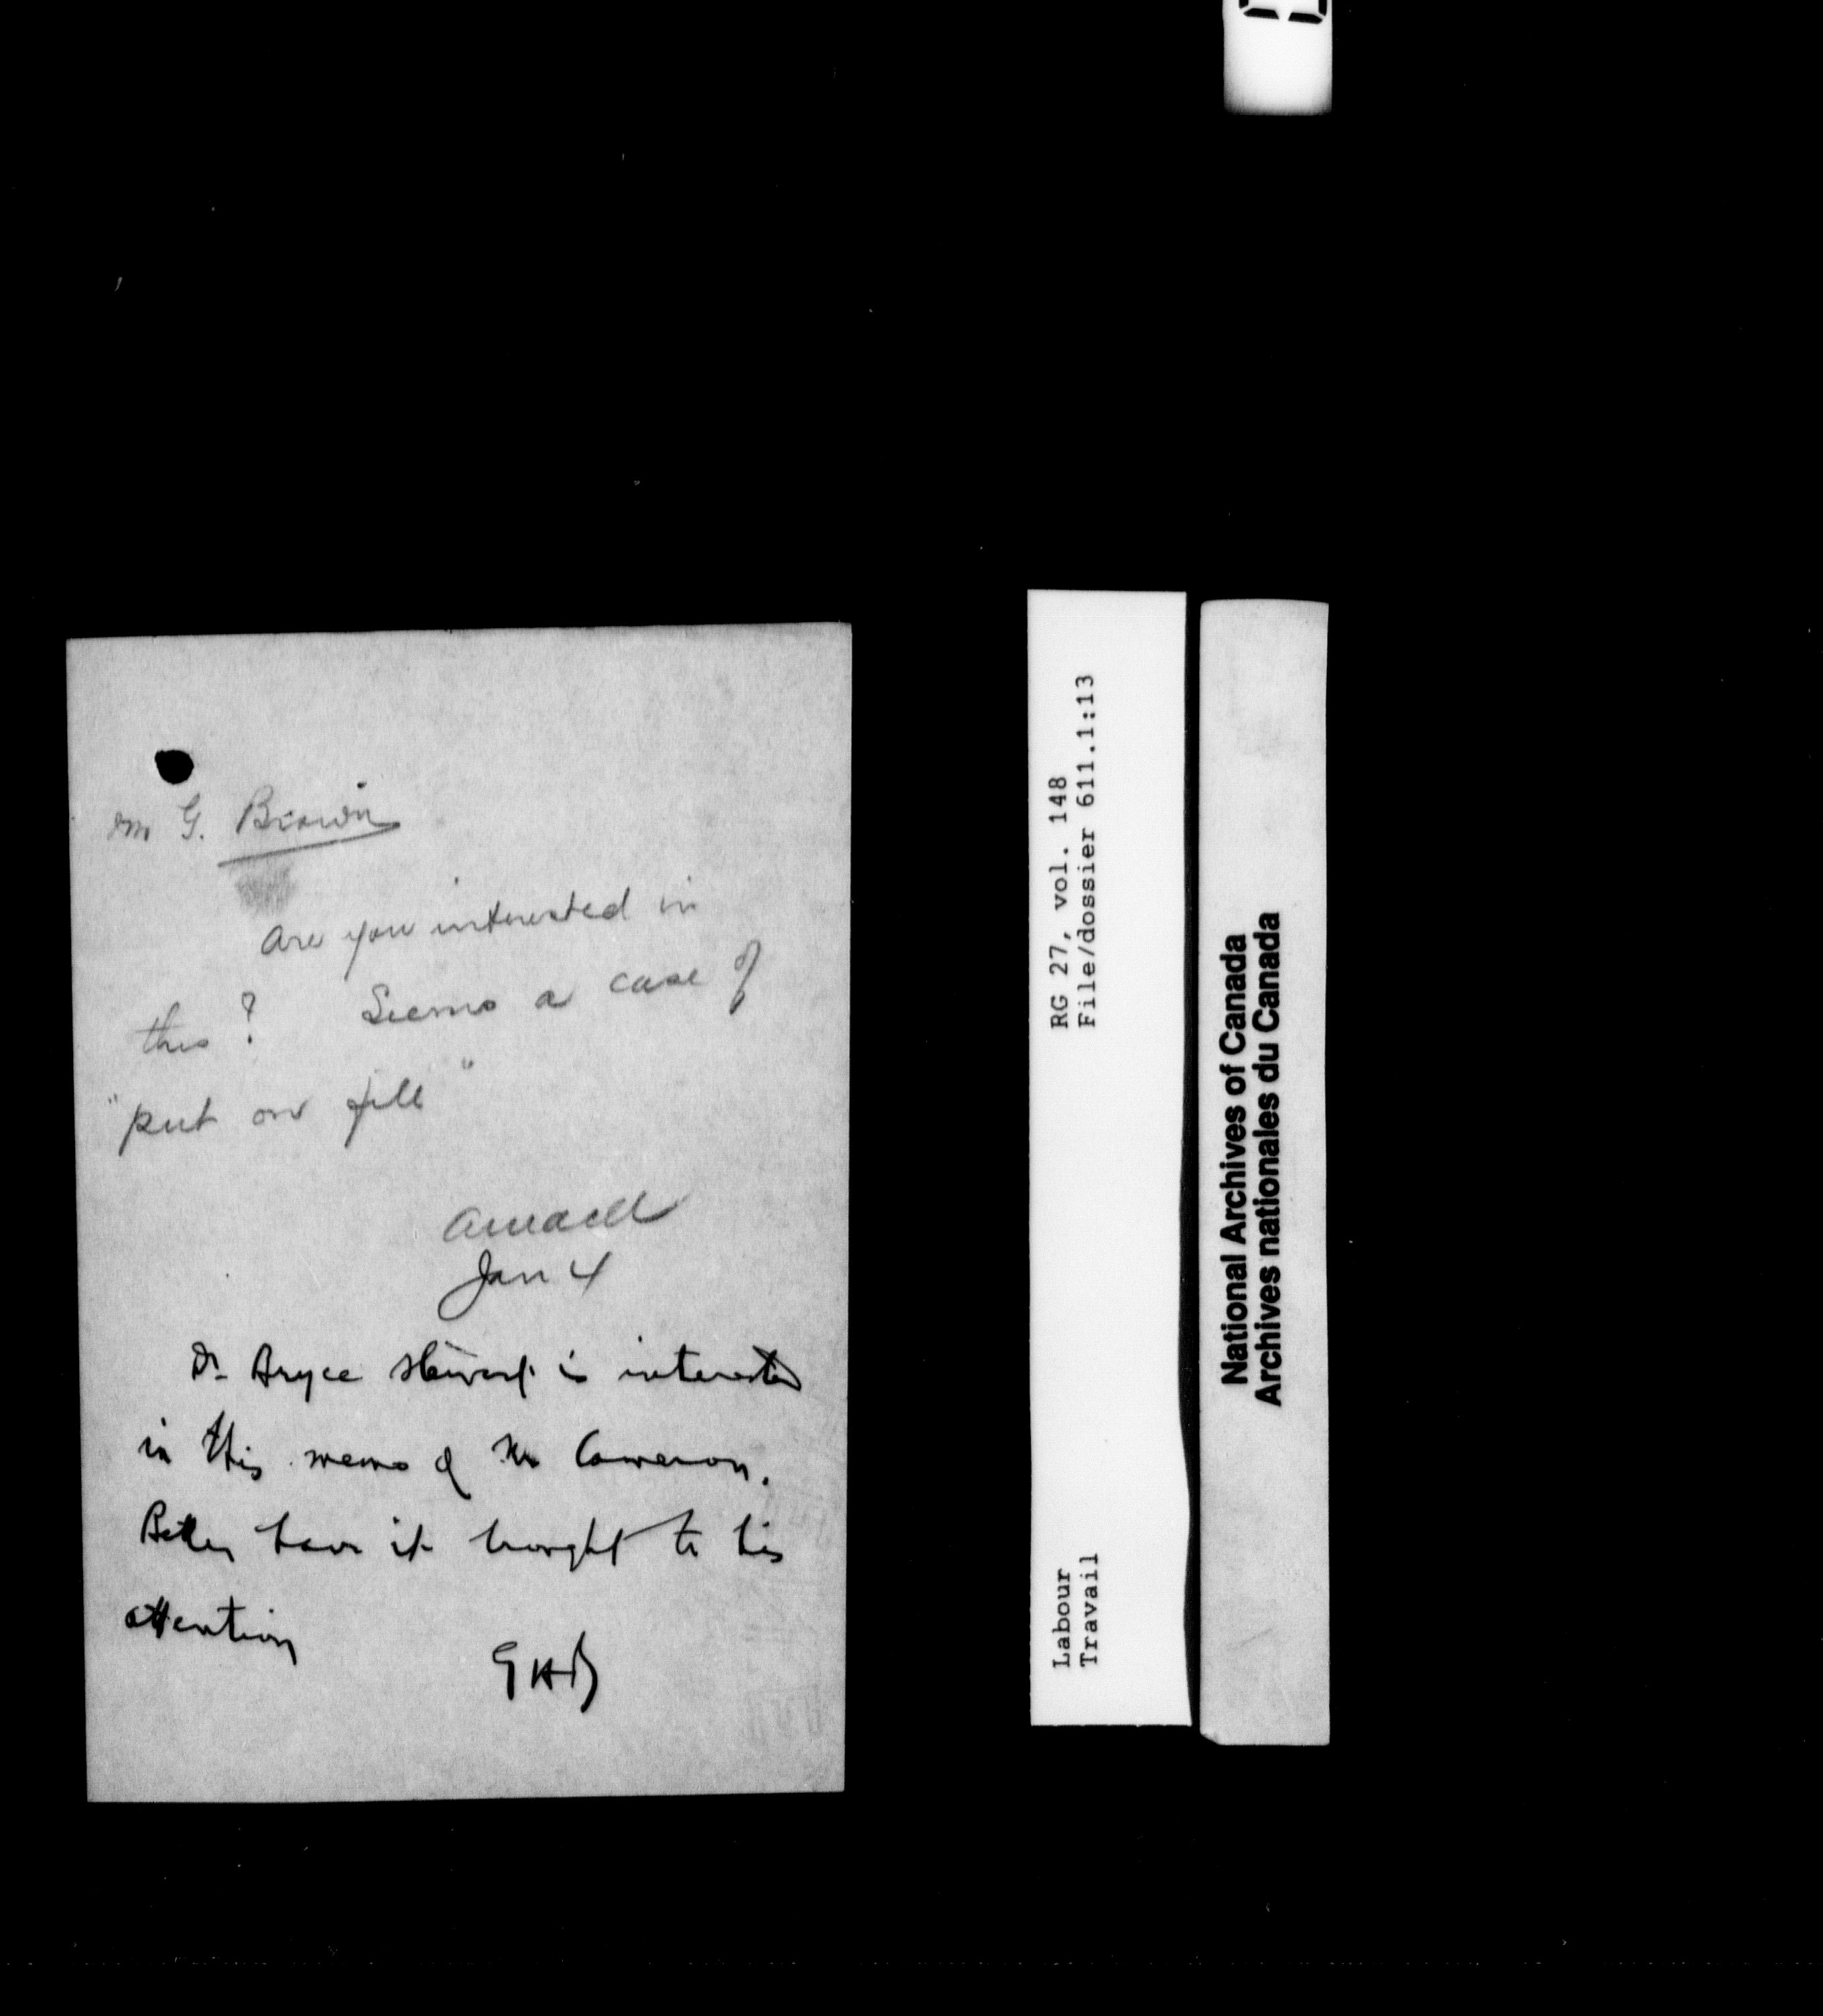 Mr G. Brown
Are you interested in
this? Seems a case of
"put on file"
Jan 4
Dr Bryce Stewart is interested
in this memo of Mr Cameron.
Better have it brought to his
attention
GHB
RG 27, vol. 148
File/dossier 611.1:13
Labour
Travail
National Archives of Canada
Archives nationales du Canada